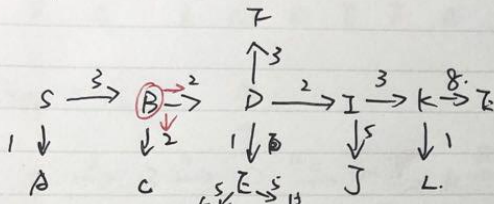 F
3
S 3 B 2 D 2 I 3 K 8.
1 2 1 5 1
A C E J L.
5 5